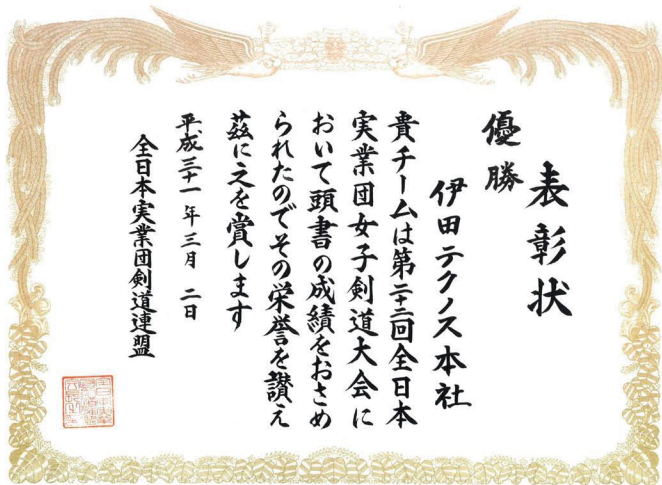 表彰状
優勝
伊田テクノス本社
貴チームは第二十二回全日本
実業団女子剣道大会に
おいて頭書の成績をおさめ
られたのでその栄誉を讃え
茲に之を賞します
平成三十一年三月二日
全日本実業団剣道連盟